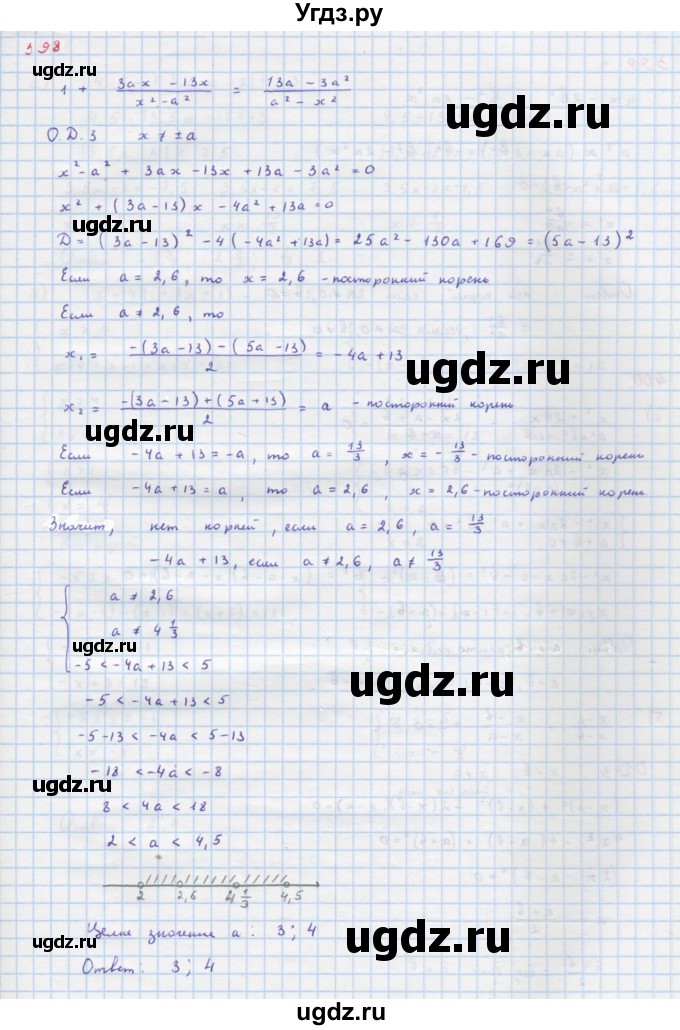 Угдз.ру
398
ugdz.ru
1 + (3ax - 13x)/(x² - a²) = (13a - 3a²)/(a² - x²)
ugdz.ru
О.Д.З x ≠ ±a
x² - a² + 3ax - 13x + 13a - 3a² = 0
ugdz.ru
x² + (3a - 13)x - 4a² + 13a = 0
ugdz.ru
D = (3a - 13)² - 4(-4a² + 13a) = 25a² - 130a + 169 = (5a - 13)²
Если a = 2,6, то x = 2,6 - посторонний корень
Если a ≠ 2,6, то
ugdz.ru
x₁ = (-(3a - 13) - (5a - 13))/2 = -4a + 13
ugdz.ru
x₂ = (-(3a - 13) + (5a + 13))/2 = a - посторонний корень
ugdz.ru
Если -4a + 13 = -a, то a = 13/3, x = -13/3 - посторонний корень
Если -4a + 13 = a, то a = 2,6, x = 2,6 - посторонний корень
Значит, нет корней, если a = 2,6, a = 13/3
-4a + 13, если a ≠ 2,6, a ≠ 13/3
{ a ≠ 2,6
a ≠ 4 1/3
ugdz.ru
-5 < -4a + 13 < 5
ugdz.ru
-5 < -4a + 13 < 5
-5 - 13 < -4a < 5 - 13
-18 < -4a < -8
ugdz.ru
8 < 4a < 18
2 < a < 4,5
ugdz.ru
2 2,6 4 1/3 4,5
Целые значения a: 3; 4
ugdz.ru
ugdz.ru
Ответ: 3; 4
ugdz.ru